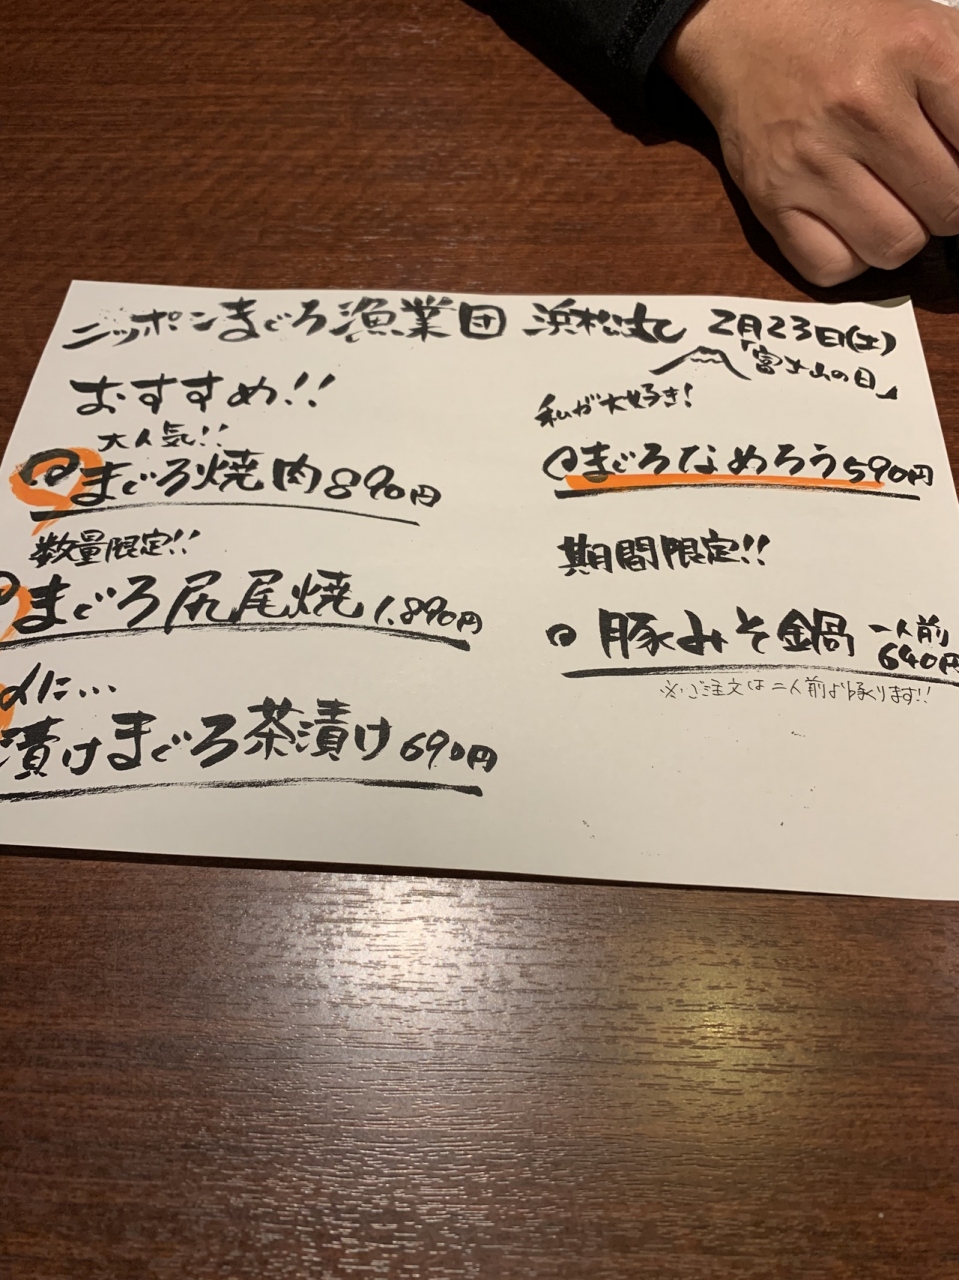 ニッポンまぐろ漁業団 浜松丸 2月23日(土)
「富士山の日」
おすすめ!!
大人気!!
まぐろ焼肉 890円
数量限定!!
まぐろ尻尾焼 1,890円
〆に…
漬けまぐろ茶漬け 690円
私が大好き!
まぐろなめろう 590円
期間限定!!
豚みそ鍋 一人前 640円
※ご注文は二人前より承ります!!